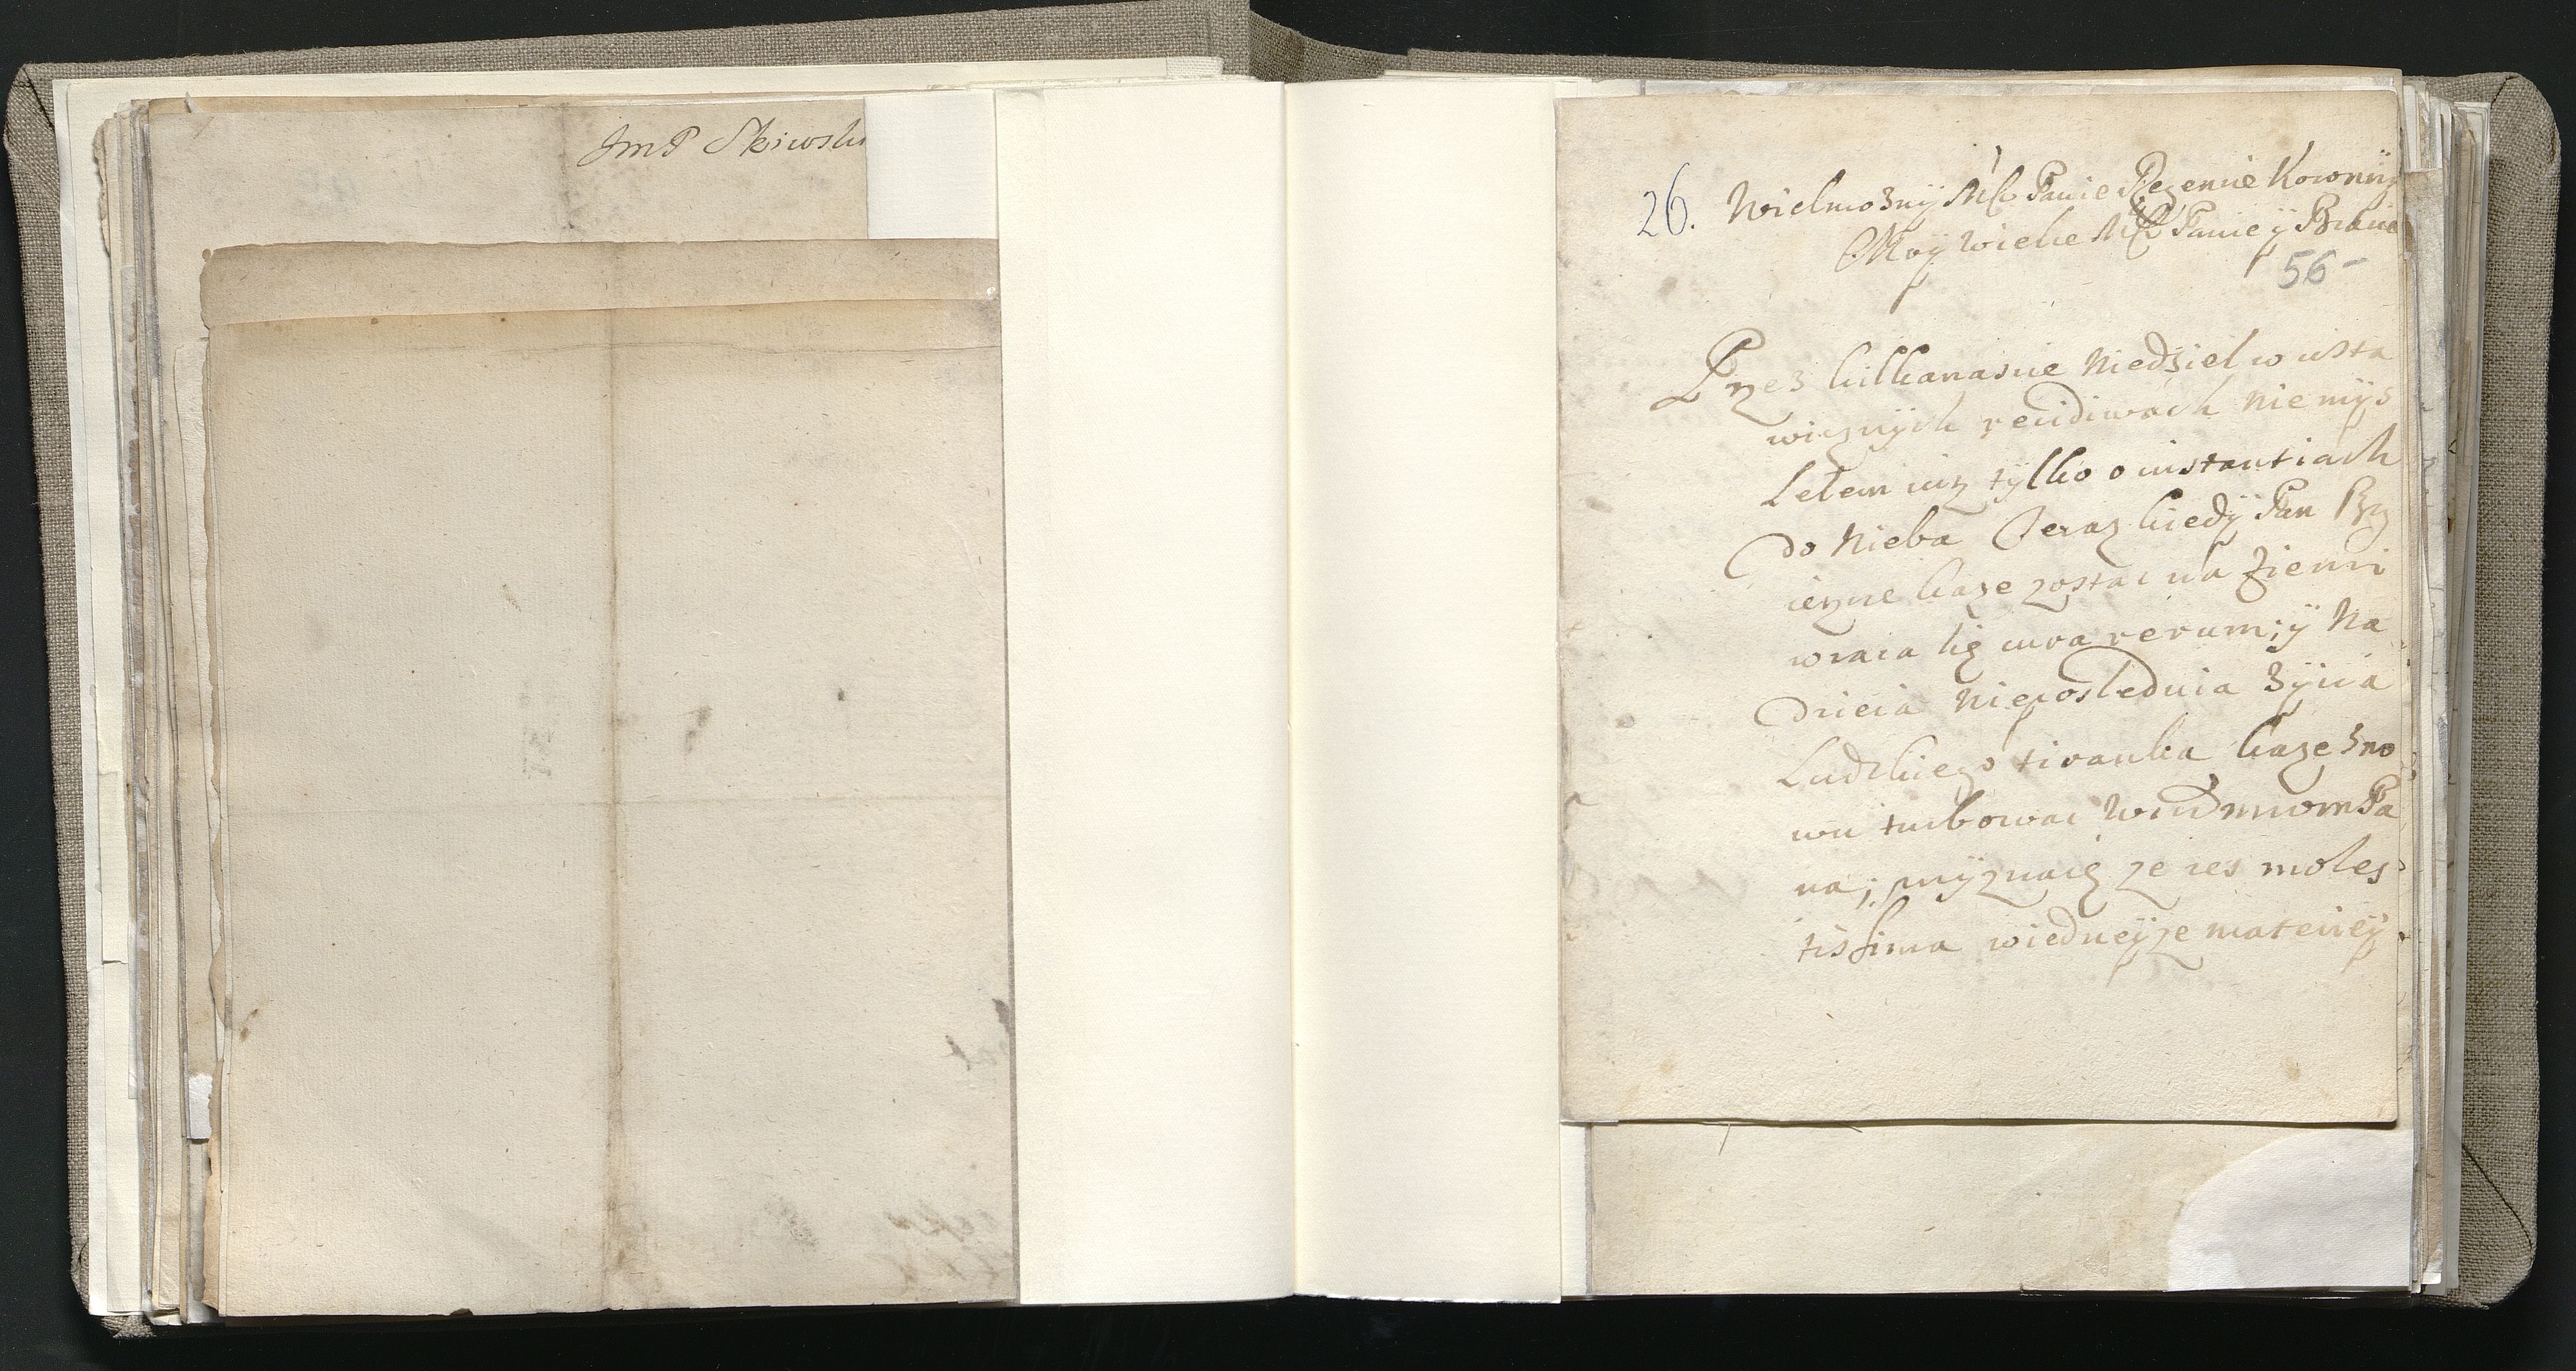 JmP Skiwski
26. Wielmozny Mſci Panie Regencie Koronny
Moy wielce Mſci Panie y Bracie
56
Przez kilkanascie Niedziel w usta
wicznych recidiwach nie mys
lelem iuz tylko o instantiach
do Nieba Teraz kiedy Pan Bog
ieszcze kaze zostac na Ziemi
wraca się cura rerum; y Na
dzieia Nieposlednia Zycia
Ludzkiego tiranka kaze zno
wu turbowac WMMPa
na; przyznaię ze res moles
tissima w iedneyze materiey